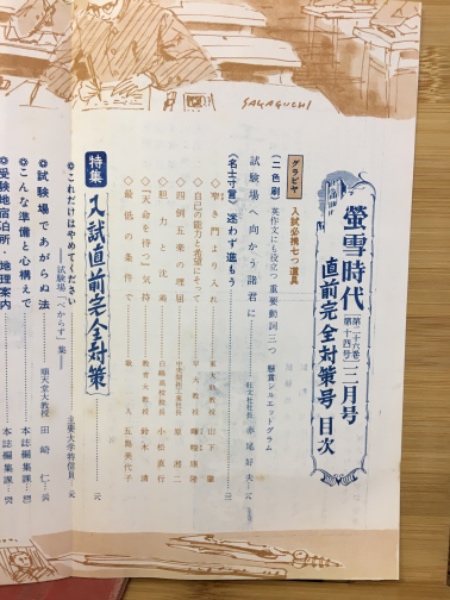 SAKAGUCHI
螢雪時代 三月号
第二十六巻
第十四号
直前完全対策号 目次
グラビヤ 入試必携七つ道具
(二色刷) 英作文にも役立つ重要動詞三つ 懸賞シルエットグラム
試験場へ向かう諸君に 旺文社社長 赤尾好夫
《名士寸言》迷わず進もう
◇狭き門より入れ 東大助教授 山下肇
◇自己の能力と希望にそって 早大教授 暉峻康隆
◇四個五楽の理屈
◇胆力と沈着 高校校長 小松直行
◇「天命を待つ」気持 教育大教授 鈴木清
◇最低の条件で 歌人 五島美代子
特集 入試直前完全対策
◎これだけはやめてください
―試験場「べからず」集― 主要大学特信員
◎試験場であがらぬ法 順天堂大教授 田崎仁
◎こんな準備と心構えで 本誌編集課
◎受験地宿泊所・地理案内 本誌編集課